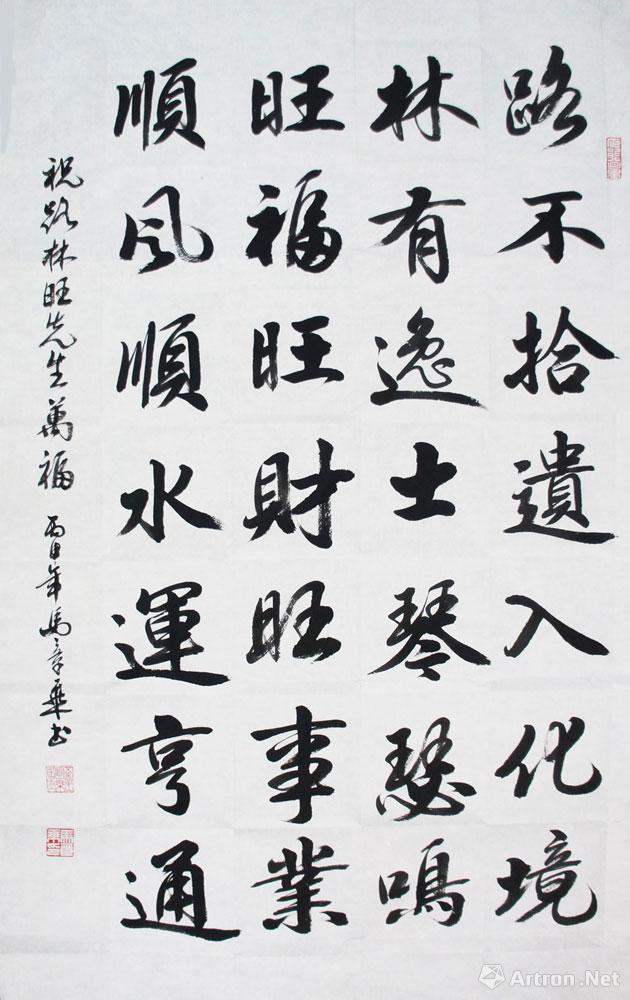 路不拾遺入化境
林有逸士琴瑟鳴
旺福旺財旺事業
順风順水運亨通
祝路林旺先生萬福 丙申年馬彦乗书
Artron.Net